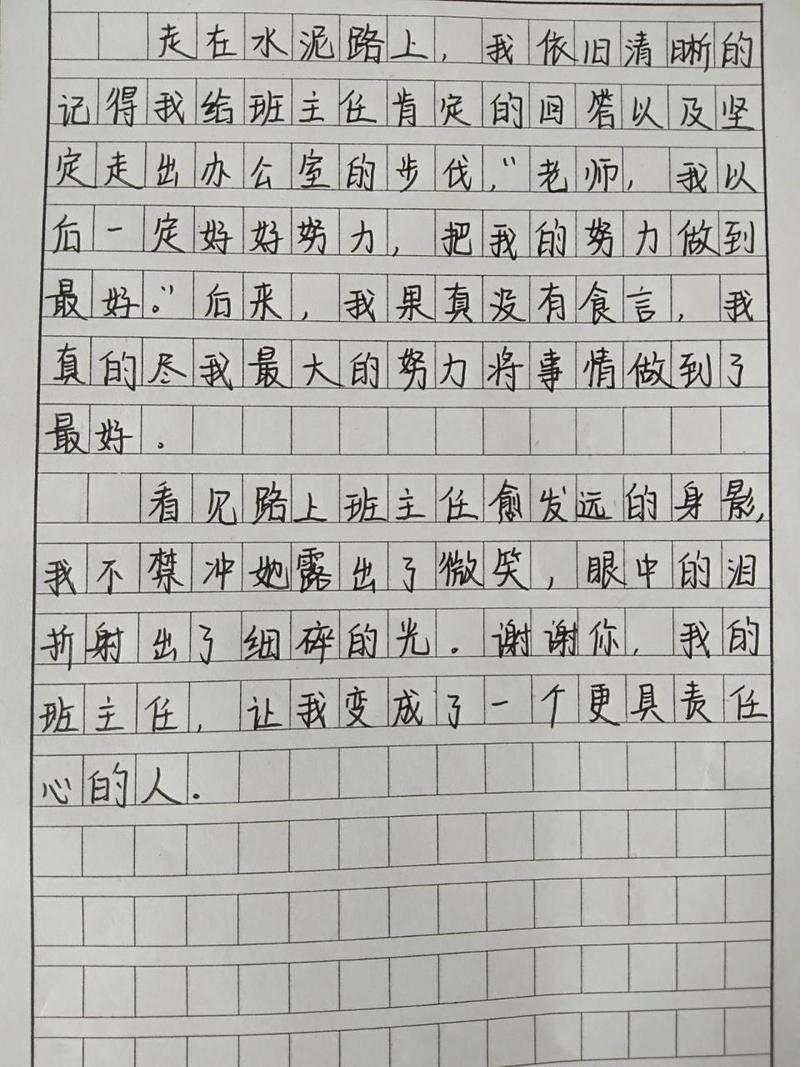 走在水泥路上，我依旧清晰的
记得我给班主任肯定的回答以及坚
定走出办公室的步伐，“老师，我以
后一定好好努力，把我的努力做到
最好。”后来，我果真没有食言，我
真的尽我最大的努力将事情做到了
最好。
看见路上班主任愈发远的身影，
我不禁冲她露出了微笑，眼中的泪
折射出了细碎的光。谢谢你，我的
班主任，让我变成了一个更具责任
心的人。